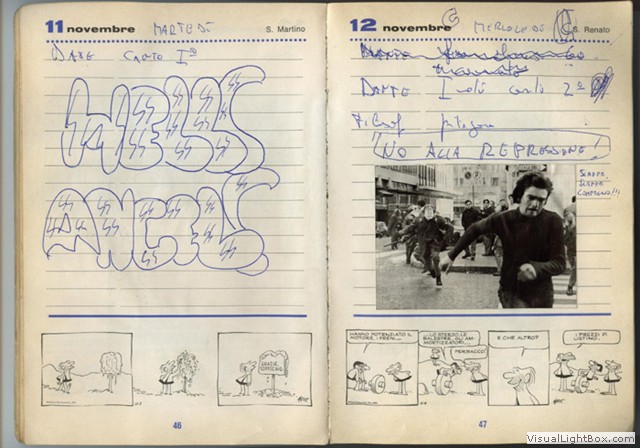 11 novembre MARTEDì S. Martino
DANTE CANTO Iº
HELLS
ANGELS
GRAZIE,
46
12 novembre MERCOLEDì S. Renato
DANTE
DANTE I 2º
Filosof
"NO ALLA REPRESSIONE!"
SCAPPA,
SCAPPA
COMPAGNO!!!
HANNO POTENZIATO IL
MOTORE, I FRENI...
...LO STERZO, LE
BALESTRE, GLI AM-
MORTIZZATORI...
PERBACCO!
E CHE ALTRO?
I PREZZI DI
LISTINO.
47
VisualLightBox.com